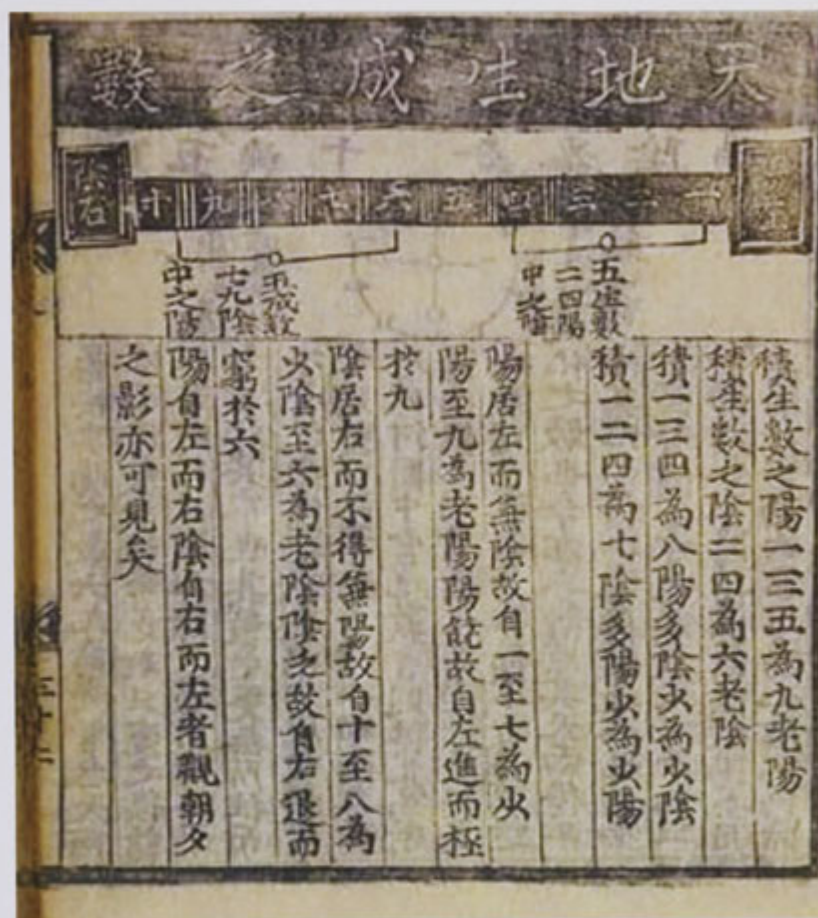 天地生成之數
一 二 三 四 五 六 七 八 九 十
陰右
五生數
二四陽
中之陰
五成數
七九陰
中之陽
積生數之陽一三五為九老陽
積生數之陰二四為六老陰
積一三四為八陽多陰少為少陰
積一二四為七陰多陽少為少陽
陽居左而無陰故自一至七為少
陽至九為老陽陽饒故自左進而極
於九
陰居右而不得無陽故自十至八為
少陰至六為老陰陰乏故自右退而
窮於六
陽自左而右陰自右而左者觀朝夕
之影亦可見矣